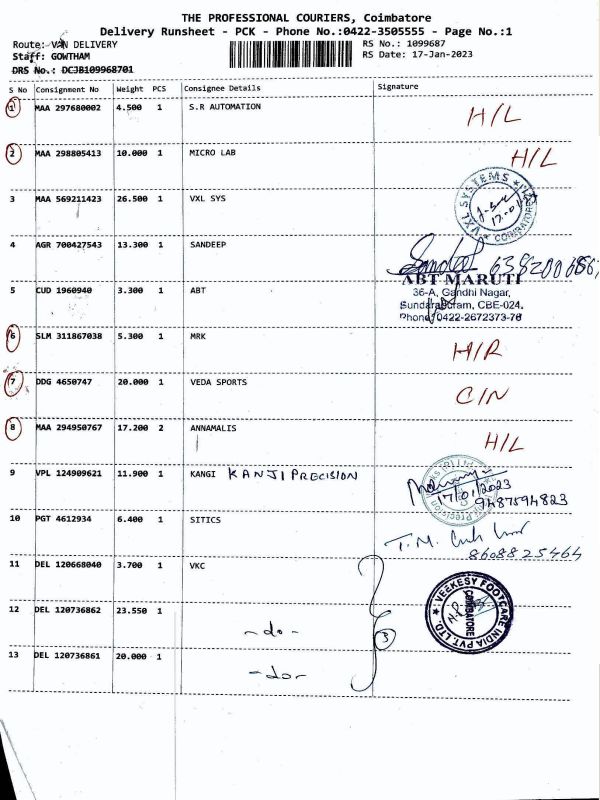 THE PROFESSIONAL COURIERS, Coimbatore
Delivery Runsheet - PCK - Phone No.:0422-3505555 - Page No.:1
Route: VAN DELIVERY
Staff: GOWTHAM
DRS No.: DCJB109968701
RS No.: 1099687
RS Date: 17-Jan-2023
S No Consignment No Weight PCS Consignee Details Signature
1 MAA 297680002 4.500 1 S.R AUTOMATION H/L
2 MAA 298805413 10.000 1 MICRO LAB H/L
3 MAA 569211423 26.500 1 VXL SYS
VXL SYSTEMS
COIMBATORE
4 AGR 700427543 13.300 1 SANDEEP
5 CUD 1960940 3.300 1 ABT
ABT MARUTI
36-A, Gandhi Nagar,
Sundarapuram, CBE-024.
Phone: 0422-2672373-76
6 SLM 311867038 5.300 1 MRK H/R
7 DDG 4650747 20.000 1 VEDA SPORTS C/N
8 MAA 294950767 17.200 2 ANNAMALIS H/L
9 VPL 124909621 11.900 1 KANGI KANJI PRECISION
17/01/2023
9487594823
10 PGT 4612934 6.400 1 SITICS
T.M.
8608825464
11 DEL 120668040 3.700 1 VKC
VEEKESY FOOTCARE INDIA PVT. LTD.
COIMBATORE
12 DEL 120736862 23.550 1
-do-
3
13 DEL 120736861 20.000 1
-do-